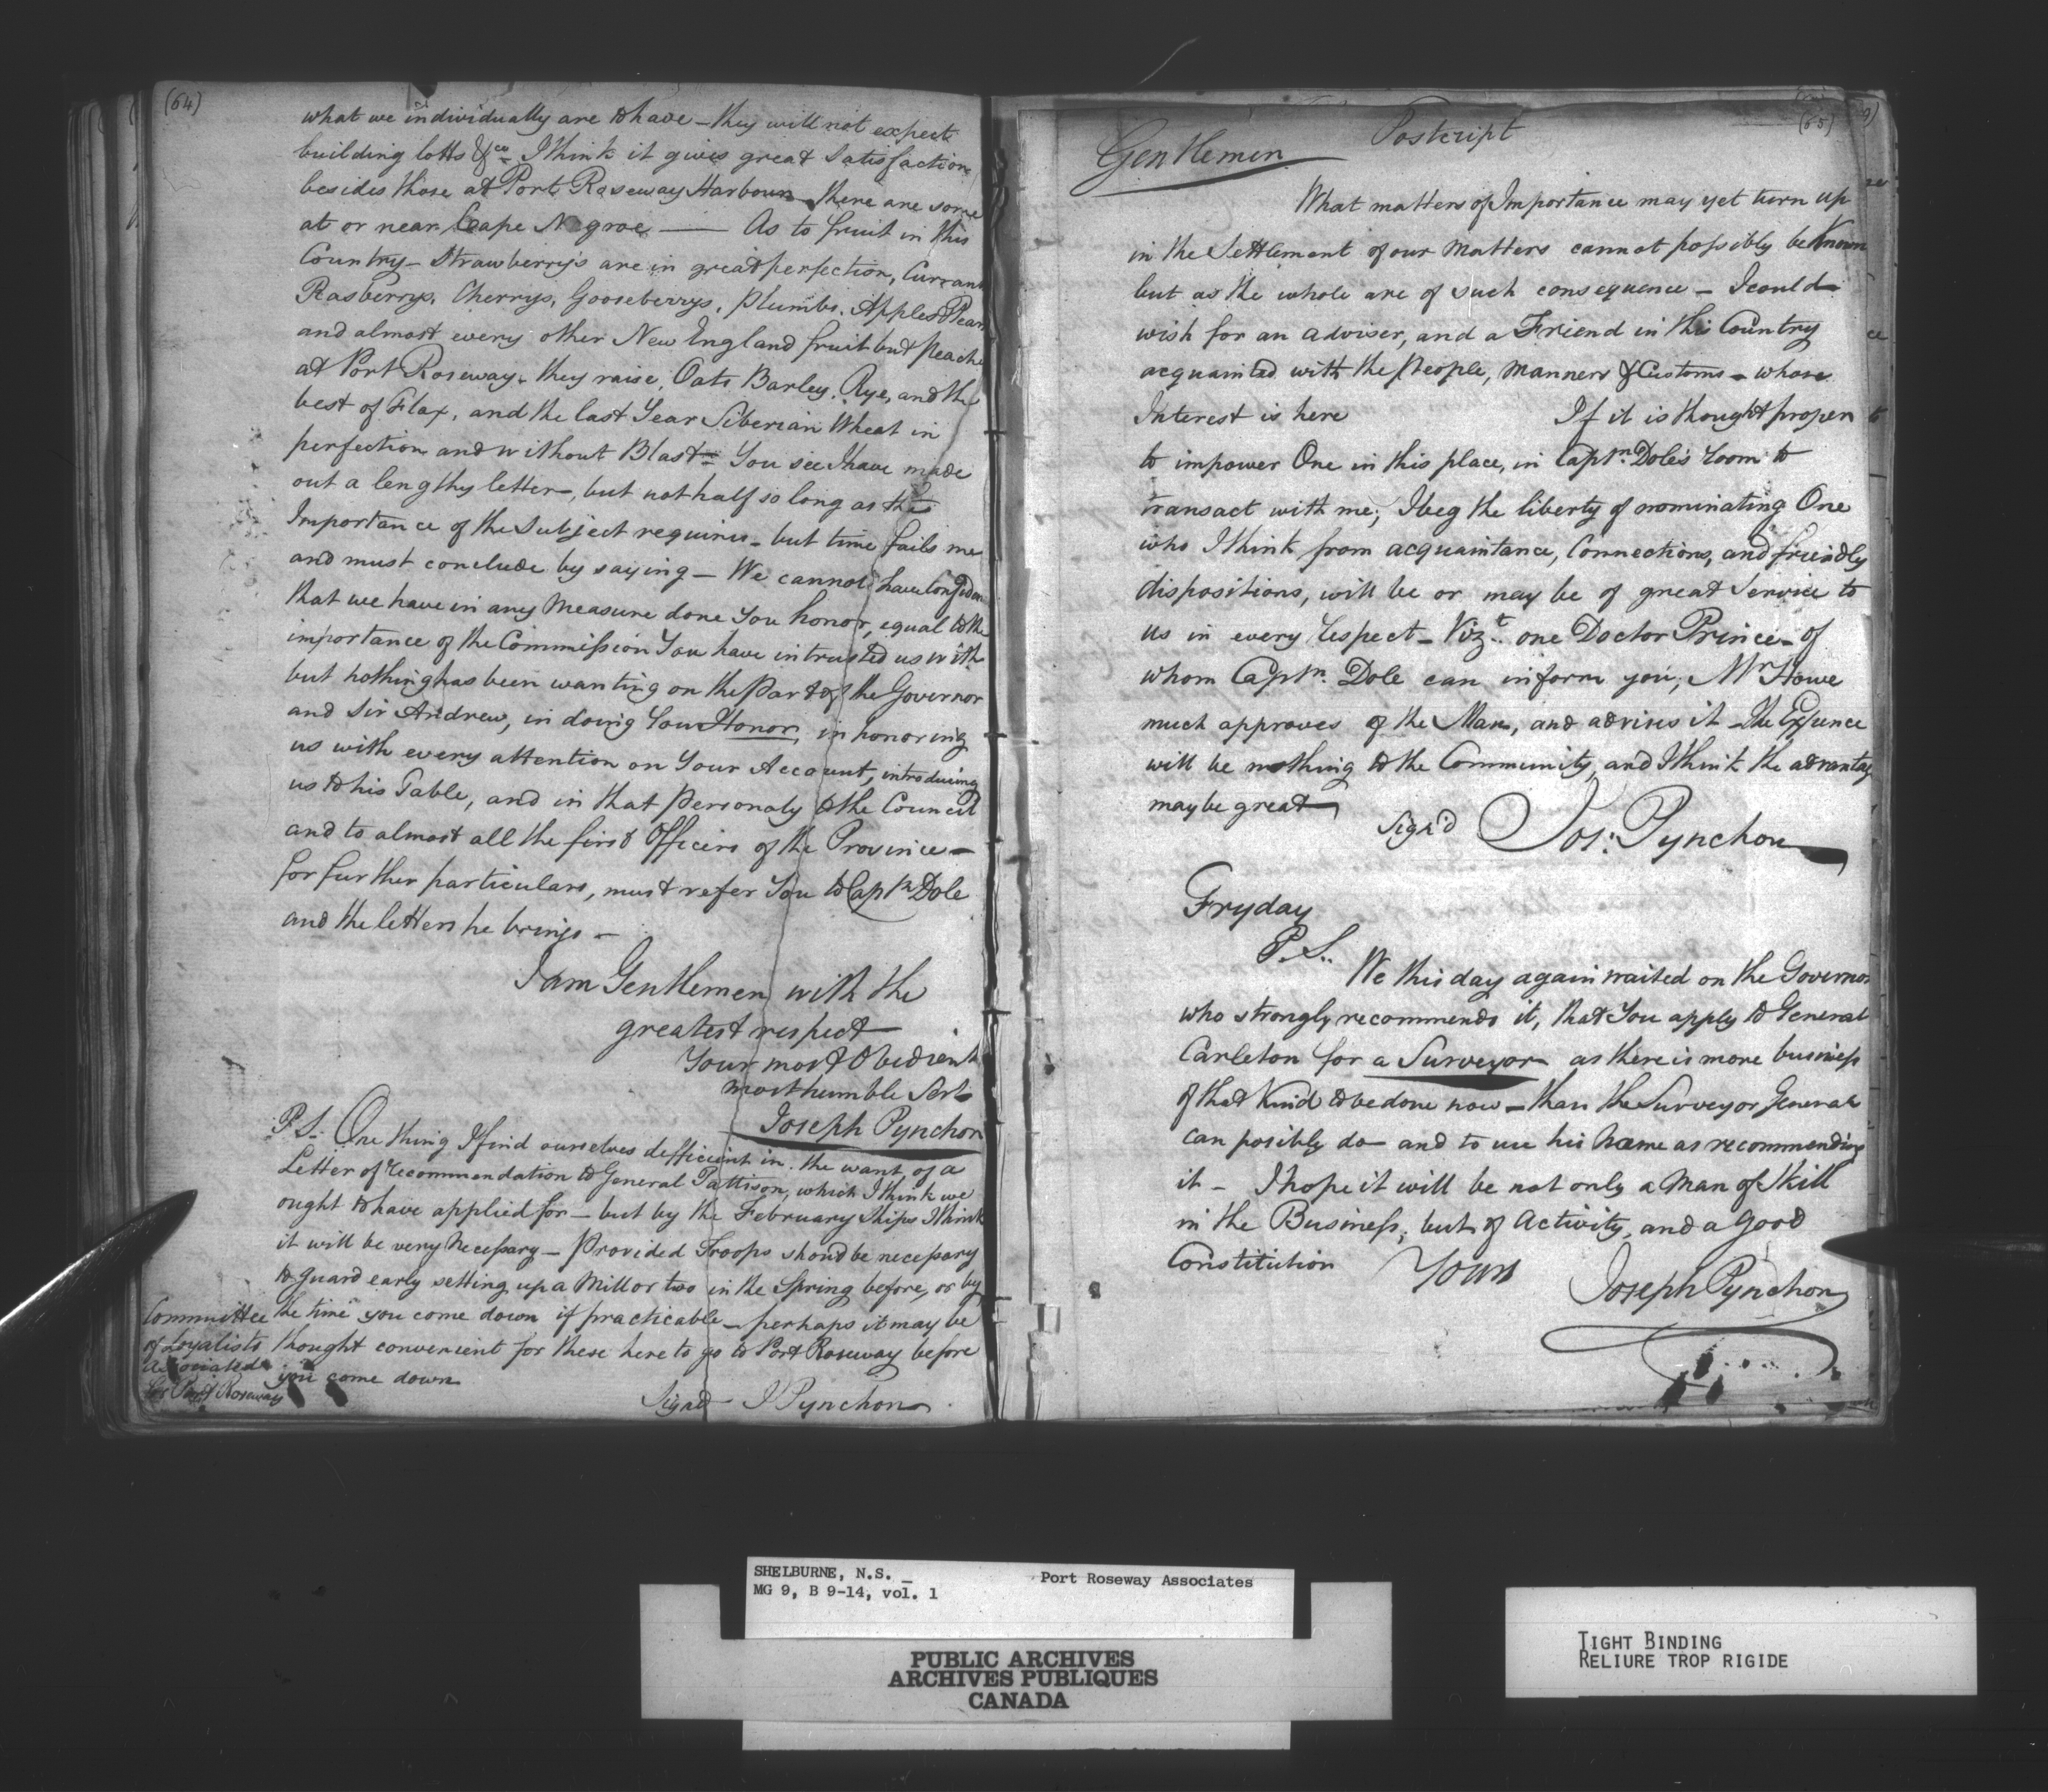 (64)
what we individually are to have – they will not expect
building lotts &ca – I think it gives great Satisfaction
besides those at Port Roseway Harbour – there are some
at or near Cape Negroe —— As to fruit in this
Country – Strawberrys are in great perfection, Currans
Rasberrys, Cherrys, Gooseberrys, Plumbs, Apples & Pears
and almost every other New England fruit but peache
at Port Roseway – they raise, Oats Barley, Rye, and the
best of Flax, and the last Year Siberian Wheat in
perfection and without Blast – You see I have made
out a lengthy letter, but not half so long as the
Importance of the Subject requires – but time fails me
and must conclude by saying – We cannot have confiden
that we have in any Measure done You honor, equal to the
importance of the Commission You have intrusted us with
but nothing has been wanting on the Part of the Governor
and Sir Andrew, in doing You Honor, in honoring
us with every attention on Your Account, introducing
us to his Table, and in that personaly to the Council
and to almost all the first Officers of the Province –
for further particulars, must refer You to Captn Dole
and the letters he brings –
I am Gentlemen with the
greatest respect
Your most Obedient
most humble Servt
Joseph Pynchon
P.S. One thing I find ourselves defficient in. the want of a
Letter of recommendation to General Pattison, which I think we
ought to have applied for – but by the February Ships I think
it will be very Necessary – Provided Troops shoud be necessary
to guard early setting up a Mill or two in the Spring before, or by
the time you come down if practicable – perhaps it may be
thought convenient for these here to go to Port Roseway before
you come down
Signd – J Pynchon
Committee
of Loyalists
Associated
for Port Roseway
(65)
Postcript
Gentlemen
What matters of Importance may yet turn up
in the Settlement of our Matters cannot possibly be Known
but as the whole are of such consequence – I could
wish for an adviser, and a Friend in this Country
acquainted with the People, Manners & Customs – whose
Interest is here If it is thought proper
to impower One in this place, in Captn. Dole's room to
transact with me; I beg the liberty of nominating One
who I think from acquaintance, Connections, and friendly
dispositions, will be or may be of great Service to
us in every respect – Vizt. one Doctor Prince – of
whom Captn. Dole can inform you; Mr Howe
much approves of the Man, and advises it – the Expence
will be nothing to the Community, and I think the advantag
may be great
Sign'd Jos: Pynchon
Fryday
P.S. We this day again waited on the Governor
who strongly recommends it, that You apply to General
Carleton for a Surveyor as there is more business
of that Kind to be done now – than the Surveyor General
can posibly do – and to use his Name as recommending
it – I hope it will be not only a Man of Skill
in the Business, but of Activity, and a Good
Constitution Yours
Joseph Pynchon
SHELBURNE, N.S. – Port Roseway Associates
MG 9, B 9-14, vol. 1
PUBLIC ARCHIVES
ARCHIVES PUBLIQUES
CANADA
TIGHT BINDING
RELIURE TROP RIGIDE